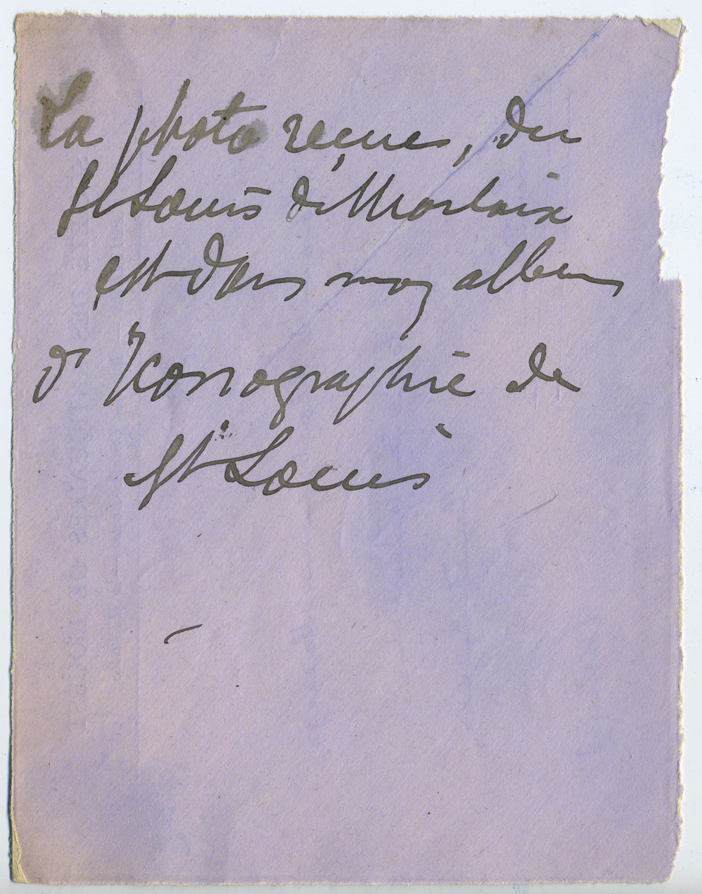 La photo reçue, du
St Louis de Morlaix
est dans mon album
d'Iconographie de
St Louis